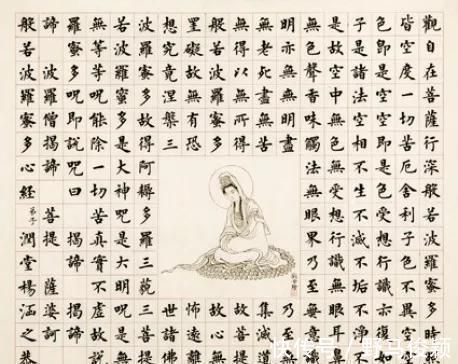 觀自在菩薩行深般若波羅蜜多時
皆空度一切苦厄舍利子色不異
色即是空空即是色受想行識亦復如
子是諸法空相不生不滅不垢不淨
是故空中無色無受想行識無眼耳
無色聲香味觸法無眼界乃至無
明亦無無明盡
乃至
無老死盡無苦
集滅道
無得以無所
故菩
般若波羅蜜多
故心
罣礙故無有恐
怖遠離
想究竟涅槃三
世諸佛
若波羅蜜多故得阿耨多羅三藐三菩提
若波羅蜜多是大神咒是大明咒是
無等等咒能除一切苦真實不虛故說
羅蜜多咒即說咒曰揭諦揭諦
諦波羅僧揭諦菩提薩婆訶
般若波羅蜜多心經弟子潤堂楊涵之恭
快傳號/野马轻颖